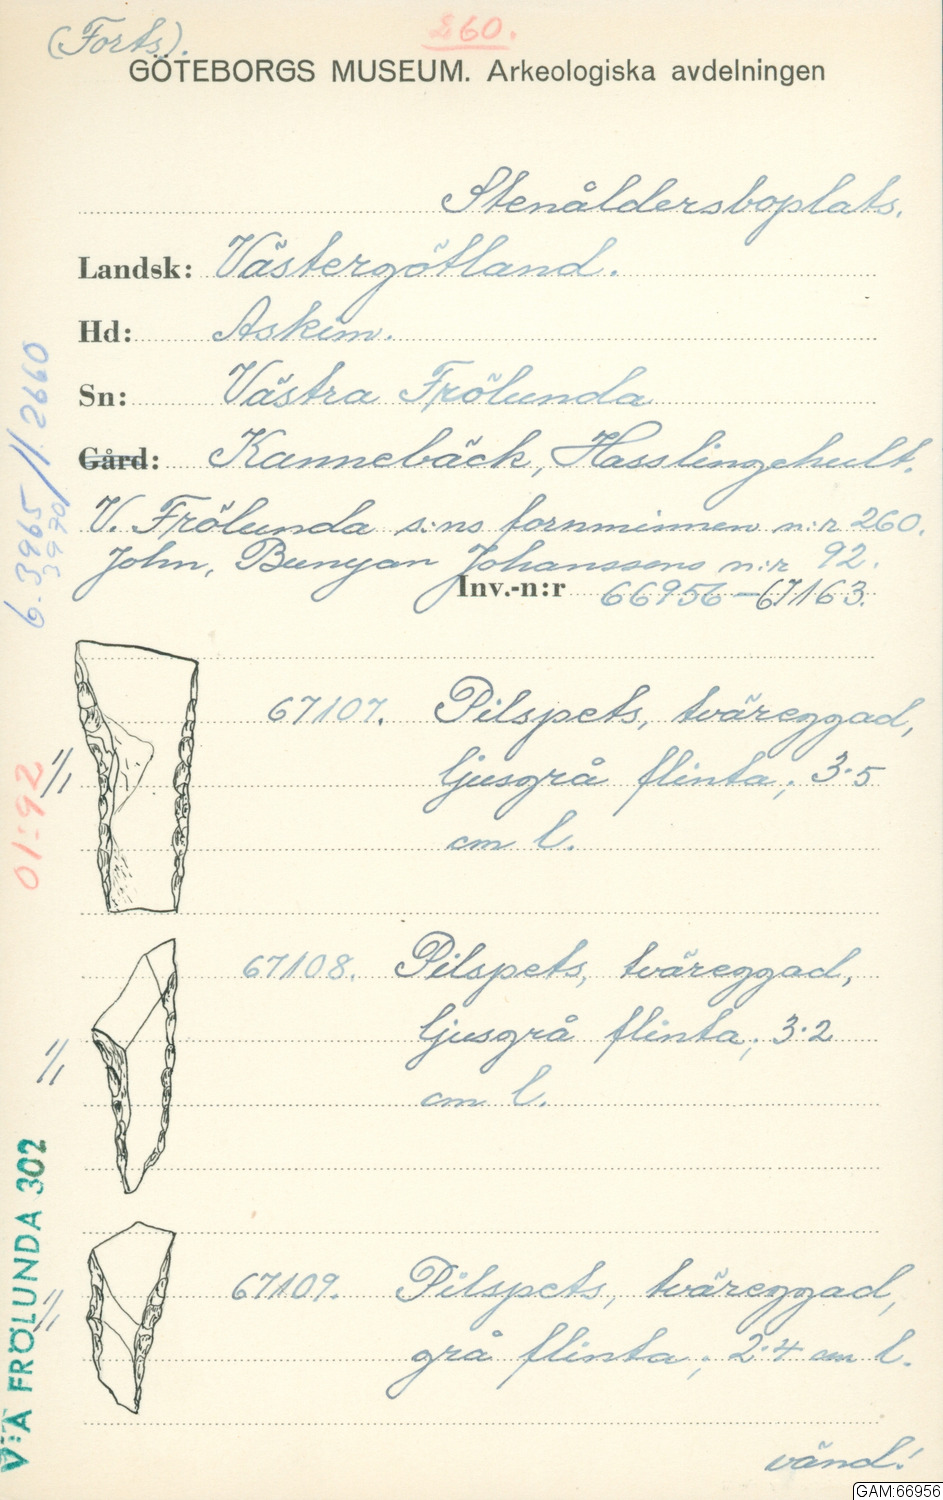 260.
(Forts).
GÖTEBORGS MUSEUM. Arkeologiska avdelningen
Stenåldersboplats.
Landsk: Västergötland.
Hd: Askim.
Sn: Västra Frölunda
Gård: Kannebäck, Hasslingehult.
V. Frölunda s:ns fornminnen n:r 260.
John, Bunyan Johanssons n:r 92.
Inv.-n:r 66956-67163.
6.3965/1.2660
3970
67107. Pilspets, tväreggad,
ljusgrå flinta, 3.5
cm l.
1/1
01:92
67108. Pilspets, tväreggad,
ljusgrå flinta, 3.2
cm l.
1/1
67109. Pilspets, tväreggad,
grå flinta, 2.4 cm l.
1/1
V:A FRÖLUNDA 302
vänd!
GAM:66956